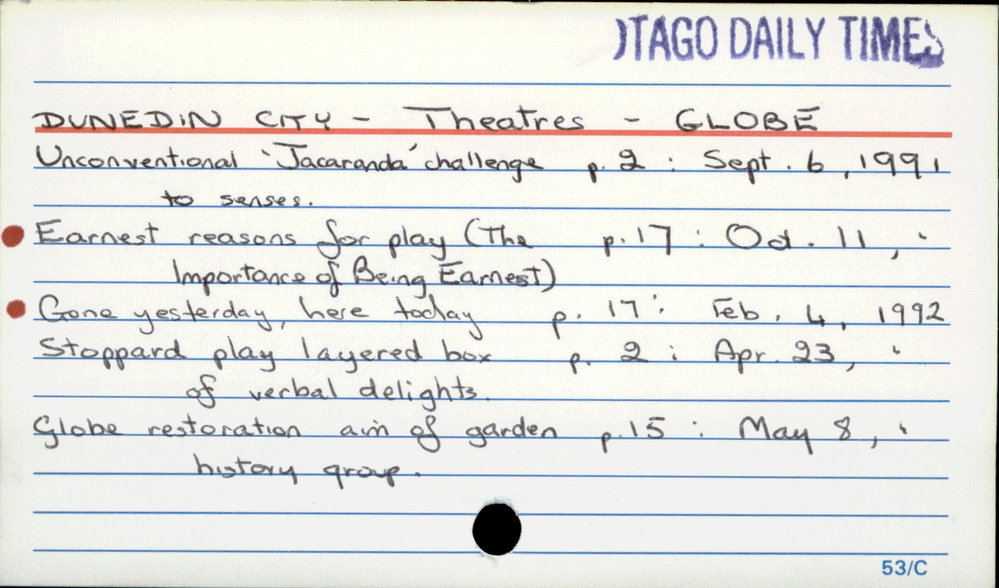 OTAGO DAILY TIMES
DUNEDIN CITY - Theatres - GLOBE
Unconventional 'Jacaranda' challenge p. 2 : Sept. 6, 1991
to senses.
Earnest reasons for play (The p. 17 : Oct. 11, "
Importance of Being Earnest)
Gone yesterday, here today p. 17 : Feb. 4, 1992
Stoppard play layered box p. 2 : Apr. 23, "
of verbal delights.
Globe restoration aim of garden p. 15 : May 8, "
history group.
53/C